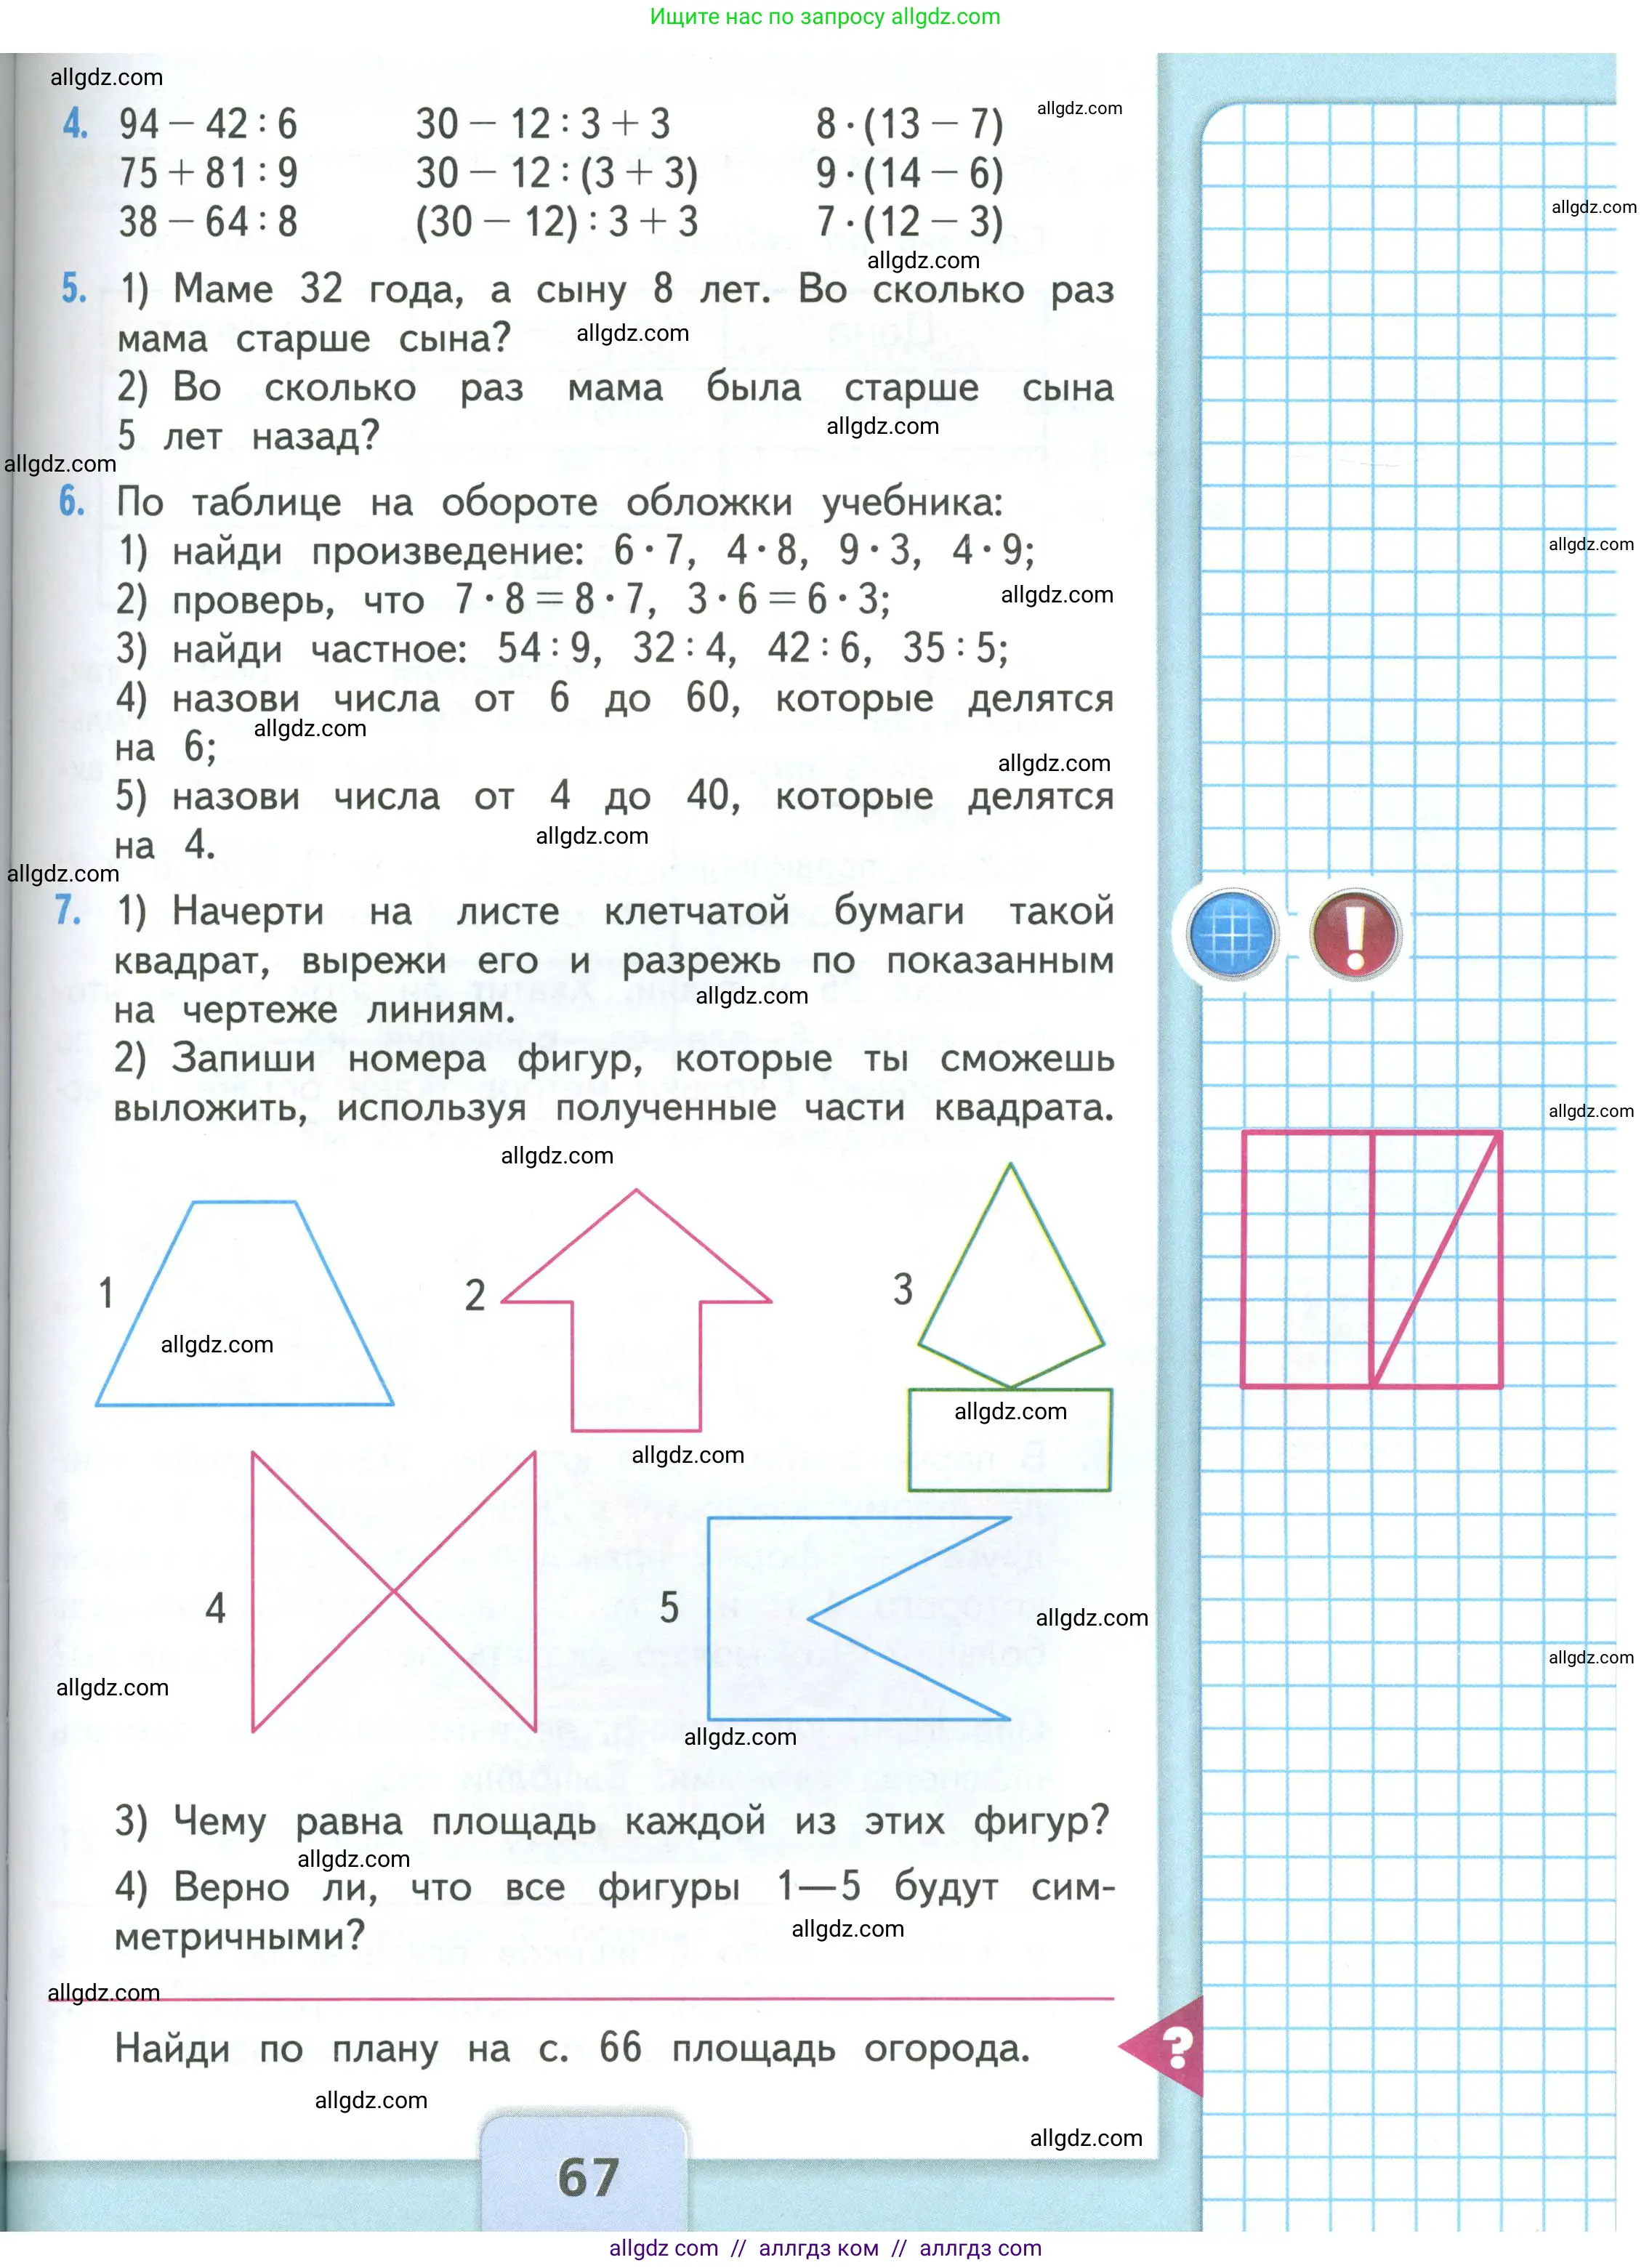 Ищите нас по запросу allgdz.com
allgdz.com
4. 94 − 42 : 6 30 − 12 : 3 + 3 8 · (13 − 7) allgdz.com
75 + 81 : 9 30 − 12 : (3 + 3) 9 · (14 − 6)
allgdz.com
38 − 64 : 8 (30 − 12) : 3 + 3 7 · (12 − 3)
allgdz.com
5. 1) Маме 32 года, а сыну 8 лет. Во сколько раз
мама старше сына? allgdz.com
2) Во сколько раз мама была старше сына
5 лет назад? allgdz.com
allgdz.com
6. По таблице на обороте обложки учебника:
1) найди произведение: 6 · 7, 4 · 8, 9 · 3, 4 · 9;
allgdz.com
2) проверь, что 7 · 8 = 8 · 7, 3 · 6 = 6 · 3; allgdz.com
3) найди частное: 54 : 9, 32 : 4, 42 : 6, 35 : 5;
4) назови числа от 6 до 60, которые делятся
allgdz.com
на 6;
allgdz.com
5) назови числа от 4 до 40, которые делятся
на 4. allgdz.com
allgdz.com
7. 1) Начерти на листе клетчатой бумаги такой
квадрат, вырежи его и разрежь по показанным
allgdz.com
на чертеже линиям.
2) Запиши номера фигур, которые ты сможешь
выложить, используя полученные части квадрата.
allgdz.com
allgdz.com
1 2 3
allgdz.com
allgdz.com
allgdz.com
4 5 allgdz.com
allgdz.com
allgdz.com
allgdz.com
3) Чему равна площадь каждой из этих фигур?
allgdz.com
4) Верно ли, что все фигуры 1—5 будут сим-
метричными? allgdz.com
allgdz.com
Найди по плану на с. 66 площадь огорода. ?
allgdz.com
allgdz.com
67
allgdz com // аллгдз ком // аллгдз com